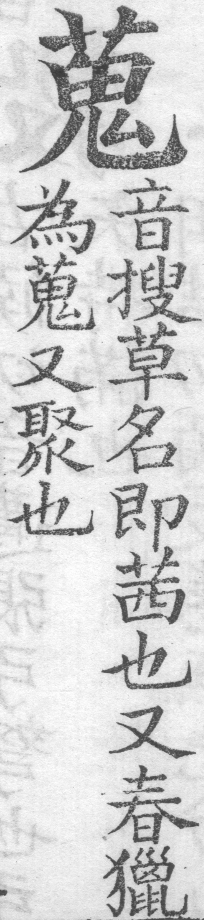 蒐
音搜草名即茜也又春獵
為蒐又聚也